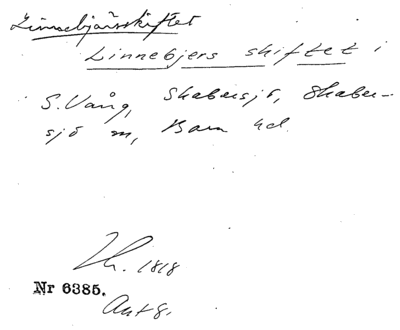 Linnebjärsskiftet
Linnebjers skiftet i
S. Vång, Skabersjö, Skaber-
sjö sn, Bara hd.
1818
Nr 6385.
Akt 8.